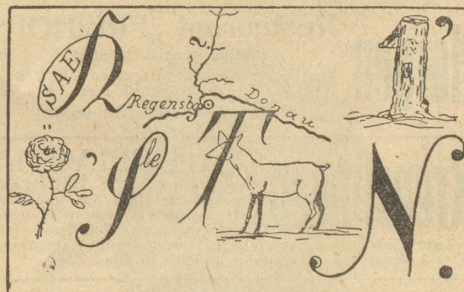 SAE H ? 1 ’
Regensbg Donau
" ’ S le T N.